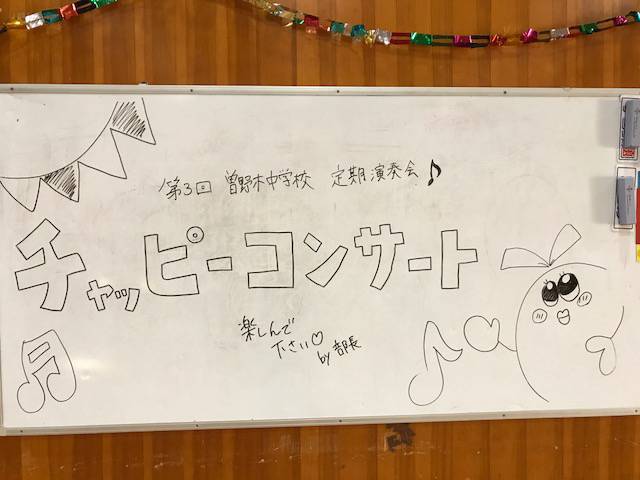 第3回 曽野木中学校 定期演奏会♪
チャッピーコンサート
楽しんで
下さい♡
by 部長